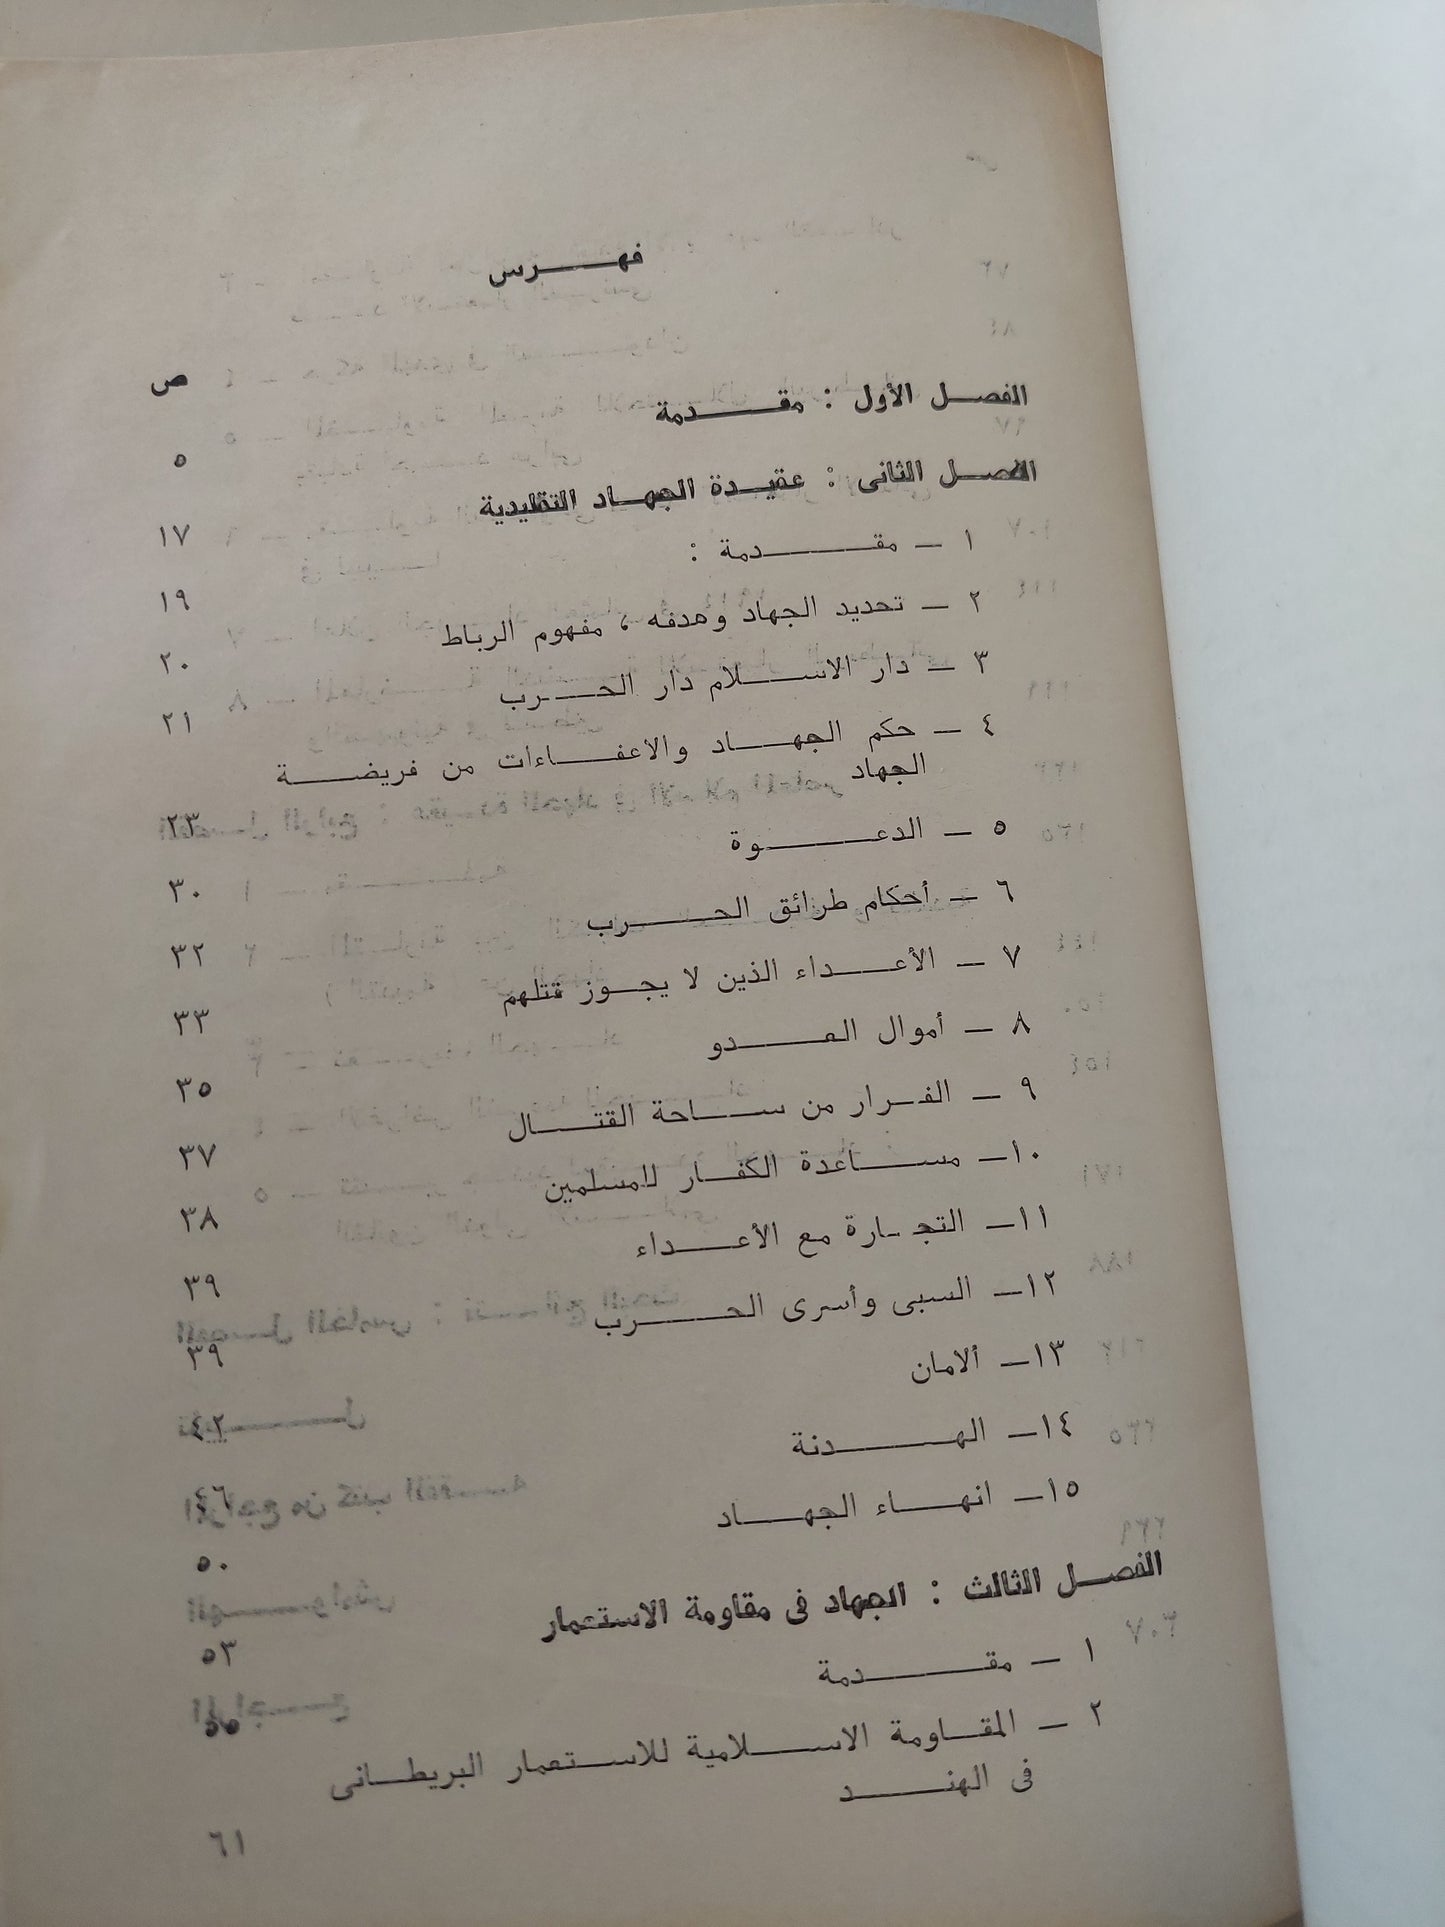 فهرس
ص
الفصل الأول : مقدمة ٥
الفصل الثانى : عقيدة الجهاد التقليدية ١٧
١ — مقدمة : ١٩
٢ — تحديد الجهاد وهدفه ، مفهوم الرباط ٢٠
٣ — دار الاسلام دار الحرب ٢١
٤ — حكم الجهاد والاعفاءات من فريضة
الجهاد ٢٣
٥ — الدعوة ٣٠
٦ — أحكام طرائق الحرب ٣٢
٧ — الأعداء الذين لا يجوز قتلهم ٣٣
٨ — أموال العدو ٣٥
٩ — الفرار من ساحة القتال ٣٧
١٠— مساعدة الكفار للمسلمين ٣٨
١١— التجارة مع الأعداء ٣٩
١٢— السبى وأسرى الحرب ٣٩
١٣— ألامان
١٤— الهدنة
١٥— انهاء الجهاد ٥٠
الفصل الثالث : الجهاد فى مقاومة الاستعمار ٥٣
١ — مقدمة ٥٥
٢ — المقاومة الاسلامية للاستعمار البريطانى
فى الهند ٦١